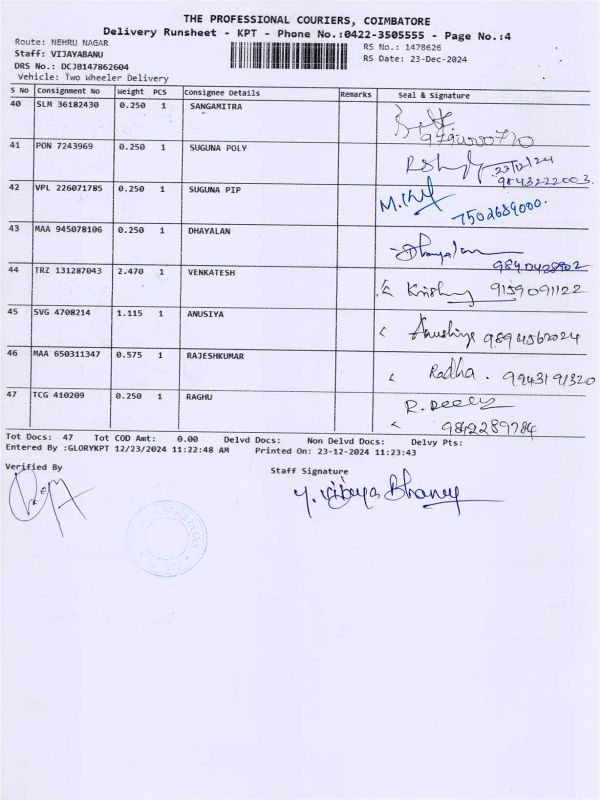 THE PROFESSIONAL COURIERS, COIMBATORE
Delivery Runsheet - KPT - Phone No.:0422-3505555 - Page No.:4
Route: NEHRU NAGAR
Staff: VIJAYABANU
DRS No.: DCJB147862604
Vehicle: Two Wheeler Delivery
RS No.: 1478626
RS Date: 23-Dec-2024
S No Consignment No Weight PCS Consignee Details Remarks Seal & Signature
40 SLM 36182430 0.250 1 SANGAMITRA
41 PON 7243969 0.250 1 SUGUNA POLY 23/12/24
9843222003.
42 VPL 226071785 0.250 1 SUGUNA PIP
7502689000.
43 MAA 945078106 0.250 1 DHAYALAN Dhayalan
9840428902
44 TRZ 131287043 2.470 1 VENKATESH 9159091122
45 SVG 4708214 1.115 1 ANUSIYA Anushiya 9894562024
46 MAA 650311347 0.575 1 RAJESHKUMAR Radha. 9943191320
47 TCG 410209 0.250 1 RAGHU
9842289784
Tot Docs: 47 Tot COD Amt: 0.00 Delvd Docs: Non Delvd Docs: Delvy Pts:
Entered By :GLORYKPT 12/23/2024 11:22:48 AM Printed On: 23-12-2024 11:23:43
Verified By
Staff Signature